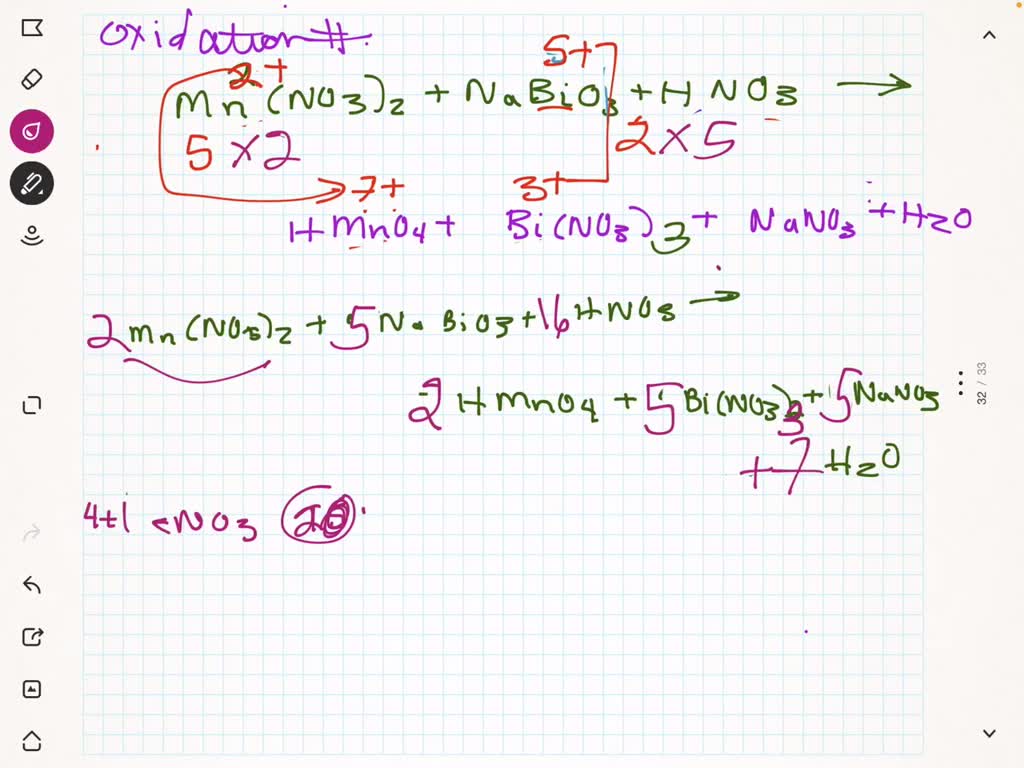 oxidation #.
2+ 5+
Mn(NO3)2 + NaBiO3 + HNO3 →
5 x 2 2 x 5
7+ 3+
HMnO4 + Bi(NO3)3 + NaNO3 + H2O
2 Mn(NO3)2 + 5 NaBiO3 + 16 HNO3 →
2 HMnO4 + 5 Bi(NO3)3 + 5 NaNO3
+ 7 H2O
4+1 <NO3
32 / 33